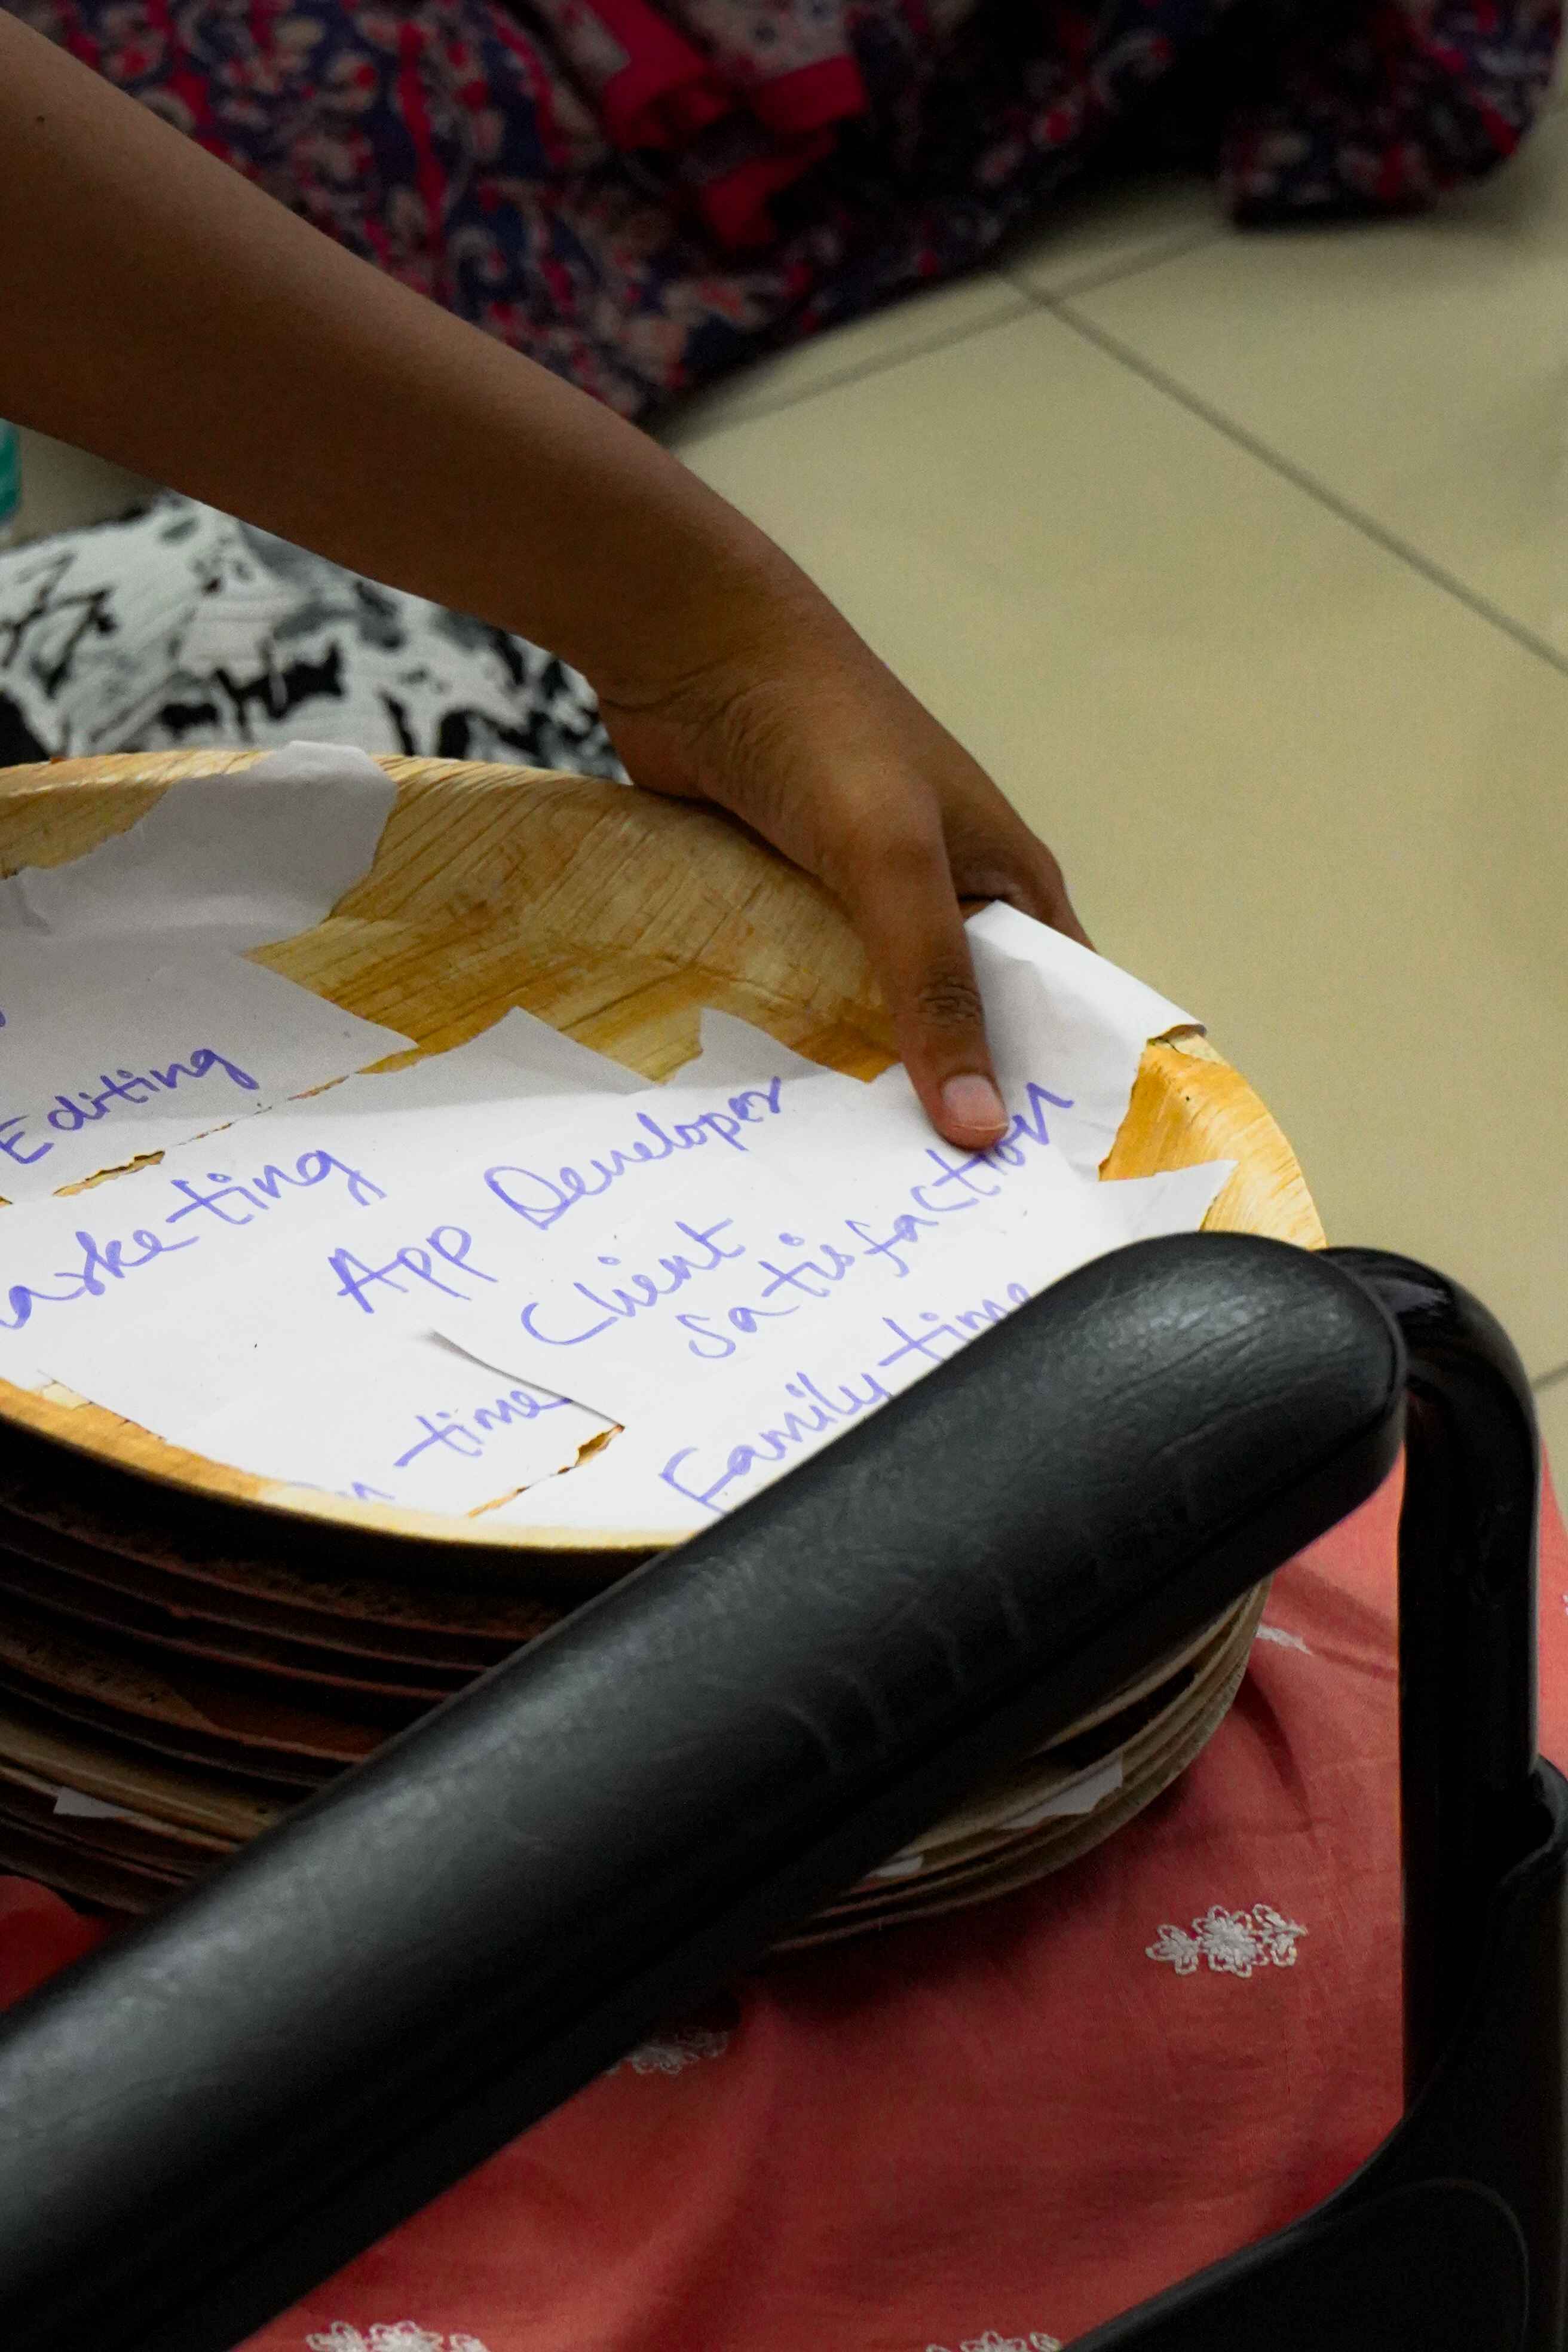 Editing
arketing
App Developer
Client
satisfaction
time
Family time